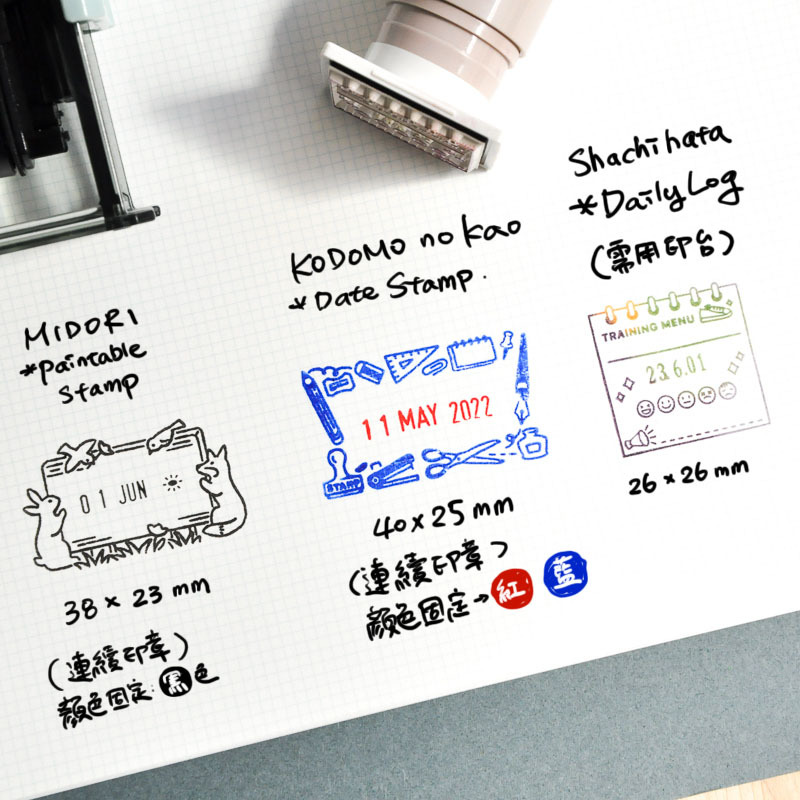 MIDORI
*Paintable
Stamp
01 JUN
38 × 23 mm
(連續印章)
顏色固定 黑色
KODOMO no Kao
*Date Stamp.
11 MAY 2022
STAMP
40 x 25 mm
(連續印章)
顏色固定→紅 藍
Shachihata
*Daily Log
(需用印台)
TRAINING MENU
23.6.01
26 × 26 mm